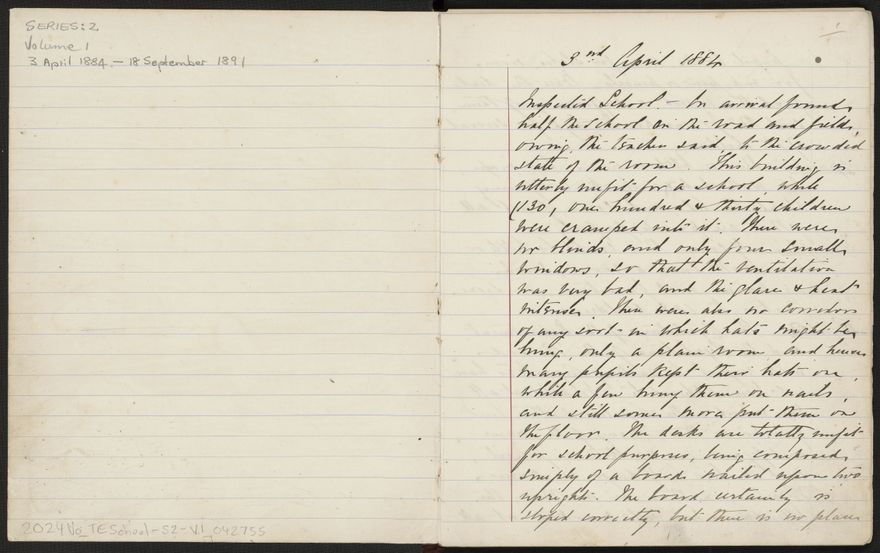 SERIES: 2
Volume 1
3 April 1884 – 18 September 1891
1
3rd April 1884
Inspected School. – On arrival found
half the School on the road and fields,
owing, the teacher said, to the crowded
state of the room. This building is
utterly unfit for a school, while
(130, one hundred & thirty children
were cramped into it. There were
no blinds, and only four small
windows, so that the ventilation
was very bad, and the glare & heat
intense. There were also no corridors
of any sort in which hats might be
hung, only a plain room and hence
many pupils kept their hats on,
while a few hung them on nails,
and still some more put them on
the floor. The desks are totally unfit
for school purposes, being composed
simply of a board nailed upon two
uprights. The board certainly is
sloped correctly, but there is no place
2024Vo_TESchool-S2-V1_042755